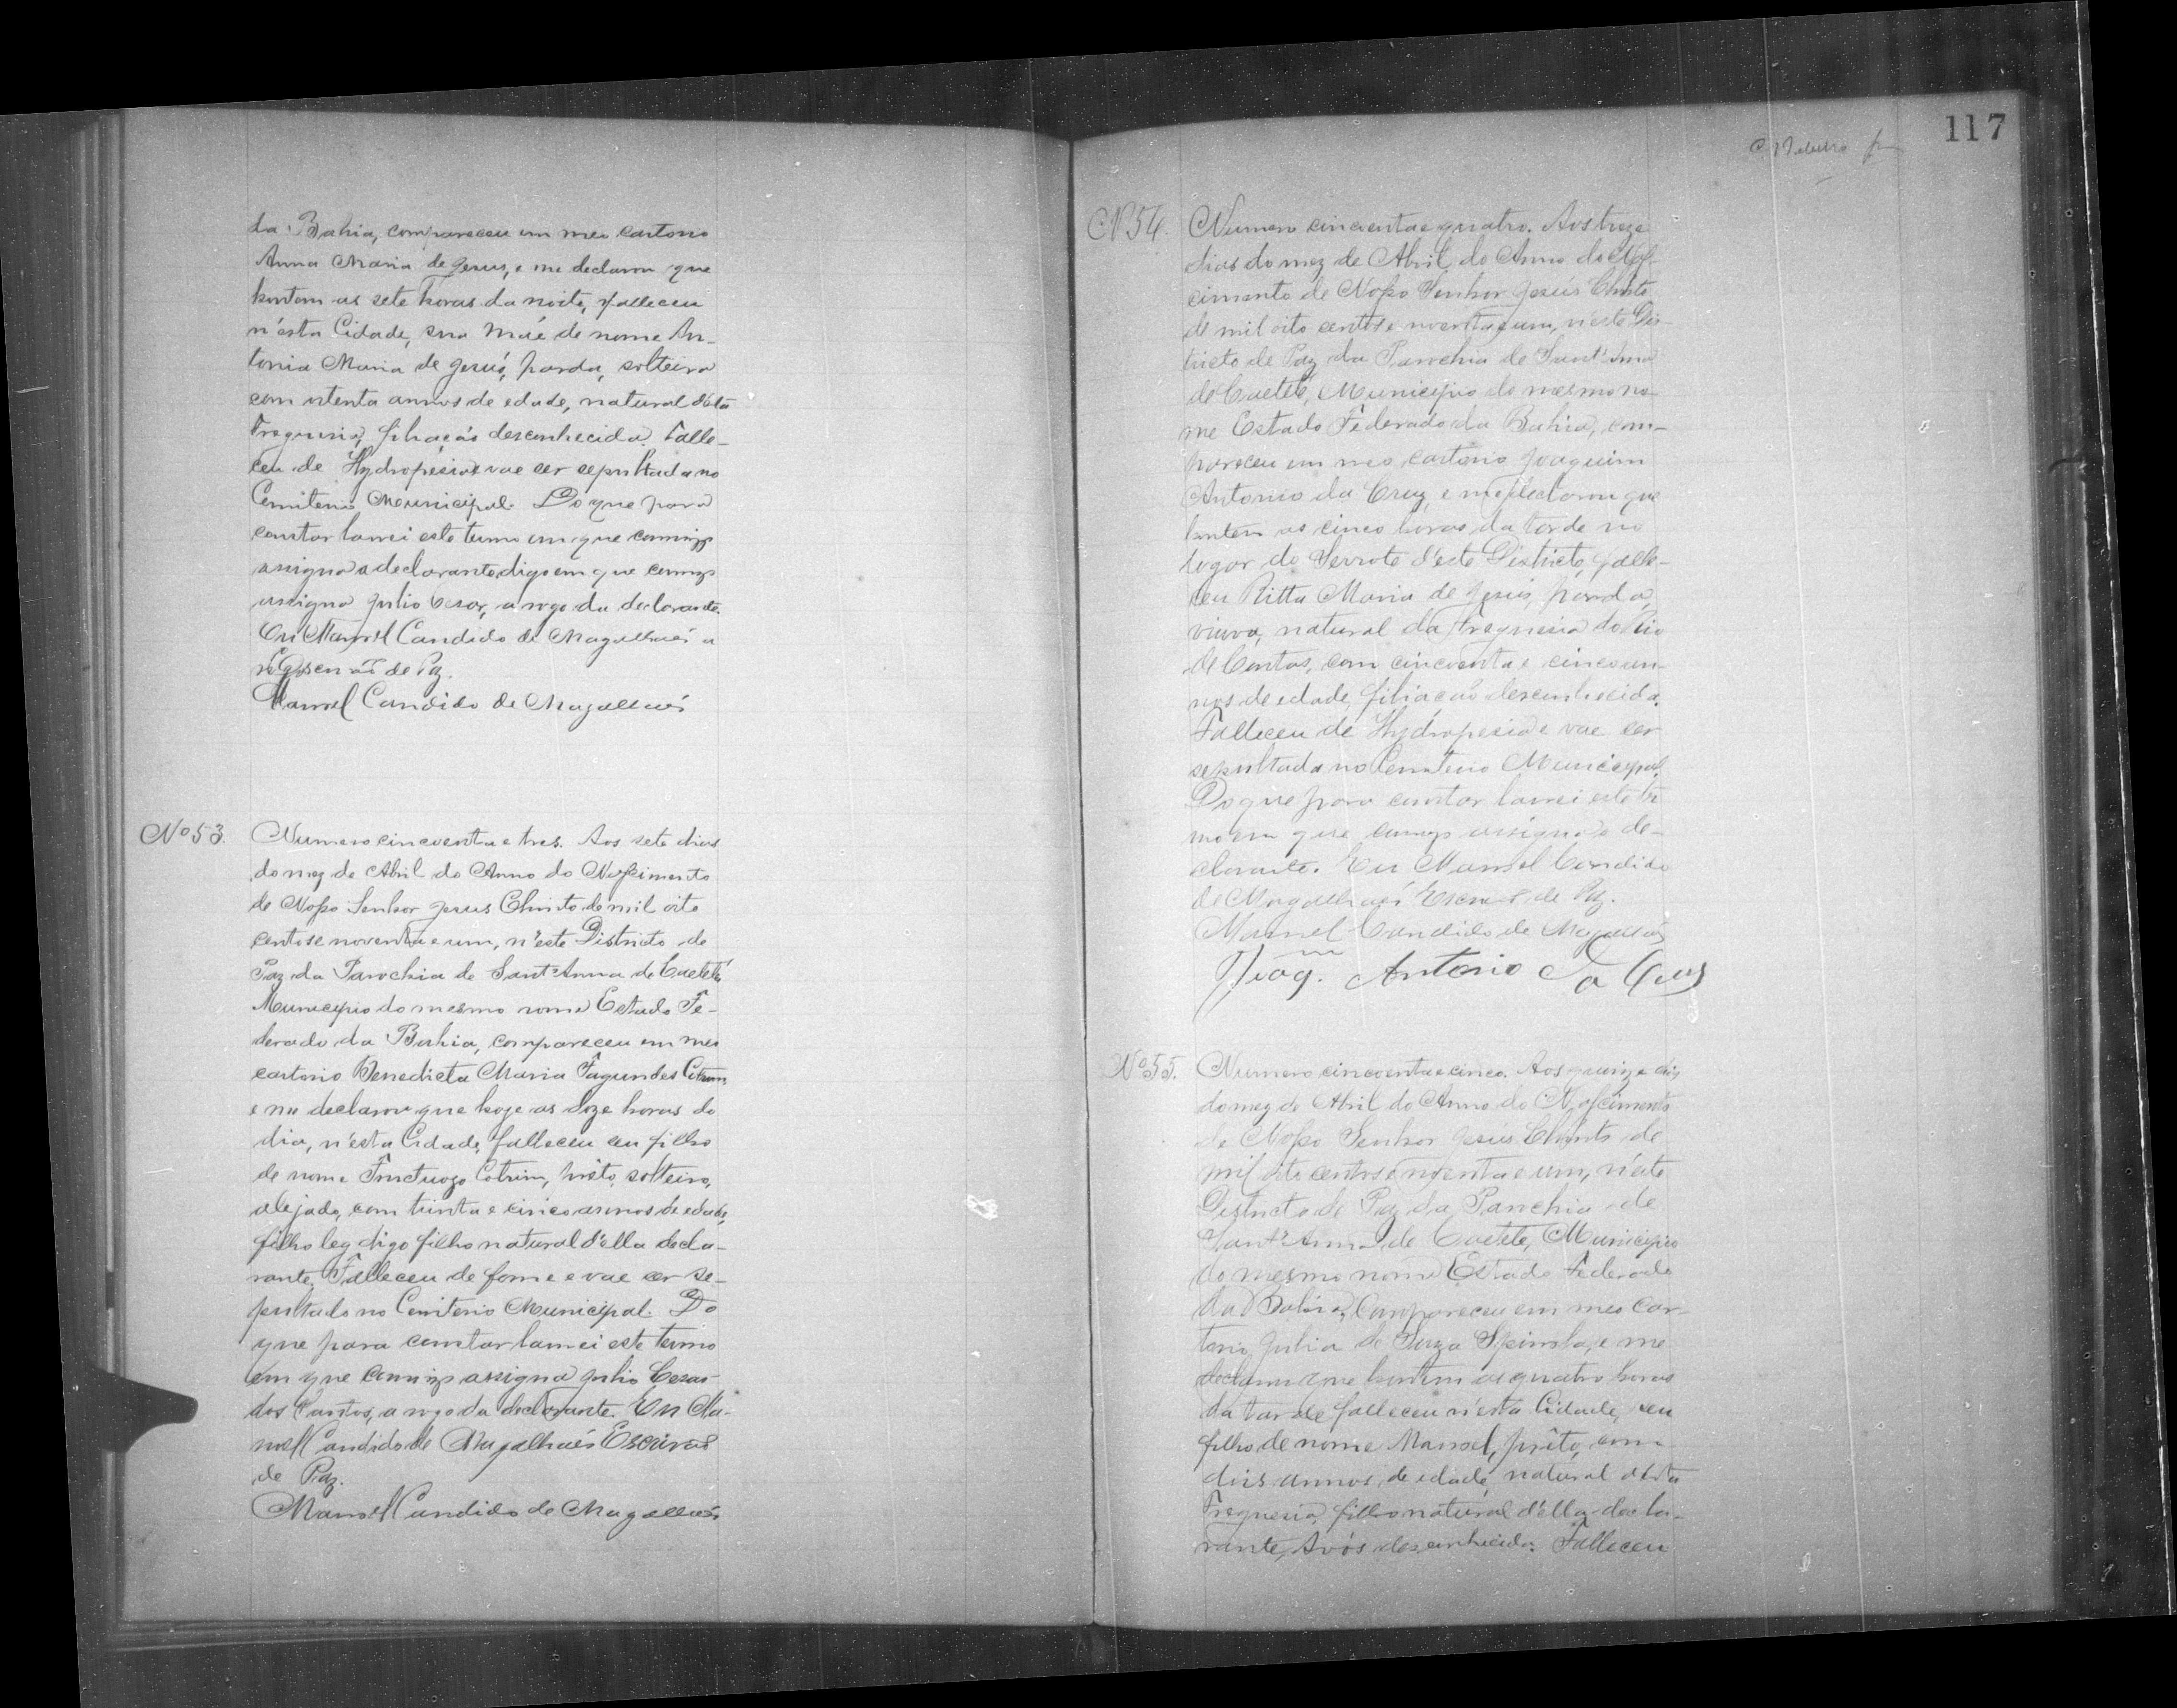 da Bahia, compareceu em meu cartorio
Anna Maria de Jesus, e me declarou que
hontem as sete horas da noite, falleceu
n'esta Cidade, sua Mãe de nome An-
tonia Maria de Jesus, parda, solteira
com oitenta annos de edade, natural d'esta
Freguesia, filiação desconhecida. Falle-
ceu de Hydropesia e vae ser sepultada no
Cemiterio Municipal. Do que para
constar lavrei este termo em que commigo
assigna a declarante, digo em que commigo
assigna Julio Cesar, a rogo da declarante.
Eu Manoel Candido de Magalhães
Escrivão de Paz.
Manoel Candido de Magalhães
Nº 53.
Numero cincoenta e tres. Aos sete dias
do mez de Abril do Anno do Nascimento
de Nosso Senhor Jesus Christo de mil oito
centos e noventa e um, n'este Districto de
Paz da Parochia de Sant'Anna de Caeteté
Municipio do mesmo nome Estado Fe-
derado da Bahia, compareceu em meu
cartorio Benedicta Maria Fagundes Cotrim
e me declarou que hoje as doze horas do
dia, n'esta Cidade, falleceu seu filho
de nome Fructuozo Cotrim, prêto, solteiro,
alejado, com trinta e cinco annos de edade,
filho leg digo filho natural d'ella decla-
rante. Falleceu de fome e vae ser se-
pultado no Cemiterio Municipal. Do
que para constar lavrei este termo
em que commigo assigna Julio Cesar
dos Santos, a rogo da declarante. Eu Ma-
noel Candido de Magalhães Escrivão
de Paz.
Manoel Candido de Magalhães
117
N 54.
Numero cincoenta e quatro. Aos treze
dias do mez de Abril do Anno do Nas-
cimento de Nosso Senhor Jesús Christo
de mil oito centos e noventa e um, n'este Dis-
tricto de Paz da Parochia de Sant'Anna
de Caeteté, Municipio do mesmo no-
me Estado Federado da Bahia, com-
pareceu em meu cartorio Joaquim
Antonio da Cruz, e me declarou que
hontem as cinco horas da tarde no
logar do Serrote d'este Districto, falle-
ceu Ritta Maria de Jesús, parda,
viuva, natural da Freguesia do Rio
de Contas, com cincoenta e cinco an-
nos de edade, filiação desconhecida.
Falleceu de Hydropesia e vae ser
sepultada no Cemiterio Municipal.
Do que para constar lavrei este ter
mo em que commigo assigna o de-
clarante. Eu Manoel Candido
de Magalhães Escrivão de Paz.
Manoel Candido de Magalhães
Joaq.m Antonio da Cruz
Nº 55.
Numero cincoenta e cinco. Aos quinze dias
do mez de Abril do Anno do Nascimento
de Nosso Senhor Jesús Christo de
mil oito centos e noventa e um, n'este
Districto de Paz da Parochia de
Sant'Anna de Caeteté, Municipio
do mesmo nome Estado Federado
da Bahia, compareceu em meu car-
torio Julia de Souza Spinola, e me
declarou que hontem as quatro horas
da tarde falleceu n'esta Cidade, seu
filho de nome Manoel, prêto, com
dois annos de edade, natural d'esta
Freguesia, filho natural d'ella decla-
rante, Avós desconhecidos. Falleceu